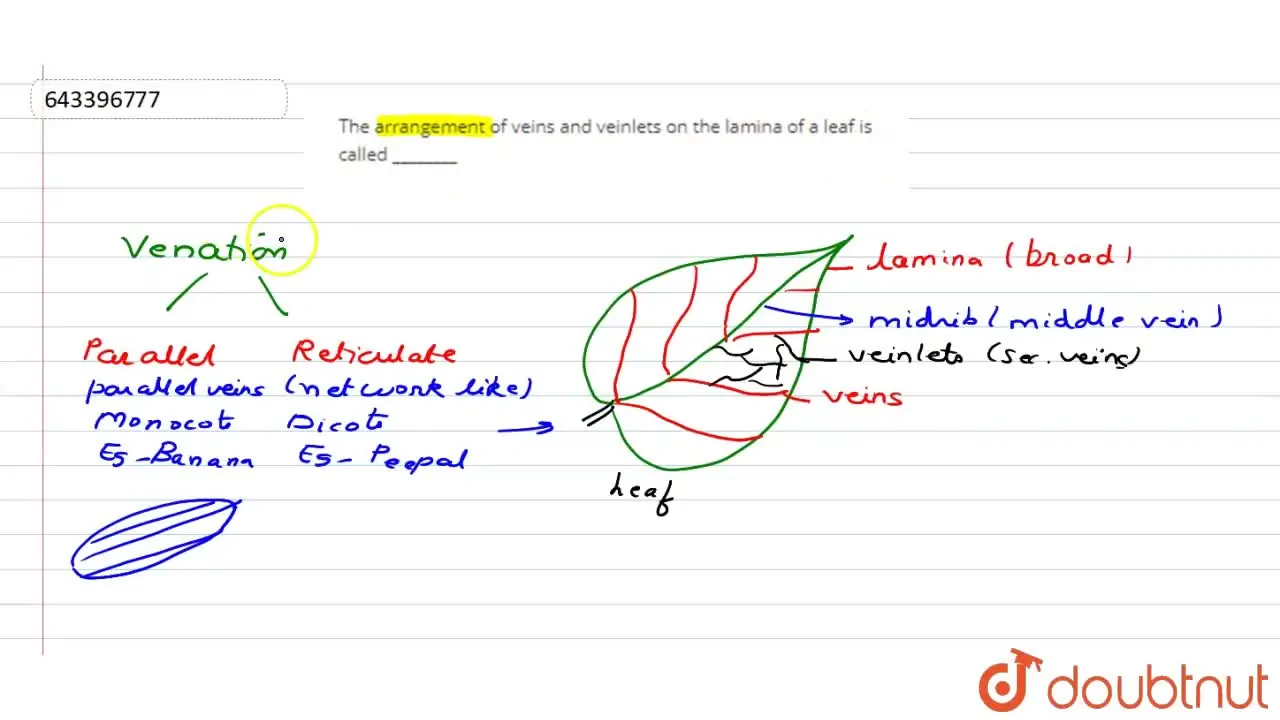 643396777
The arrangement of veins and veinlets on the lamina of a leaf is
called ________
Venation
Parallel Reticulate
parallel veins (network like)
Monocot Dicot
Eg - Banana Eg - Peepal
lamina (broad)
midrib (middle vein)
veinlets (sec. veins)
veins
leaf
doubtnut